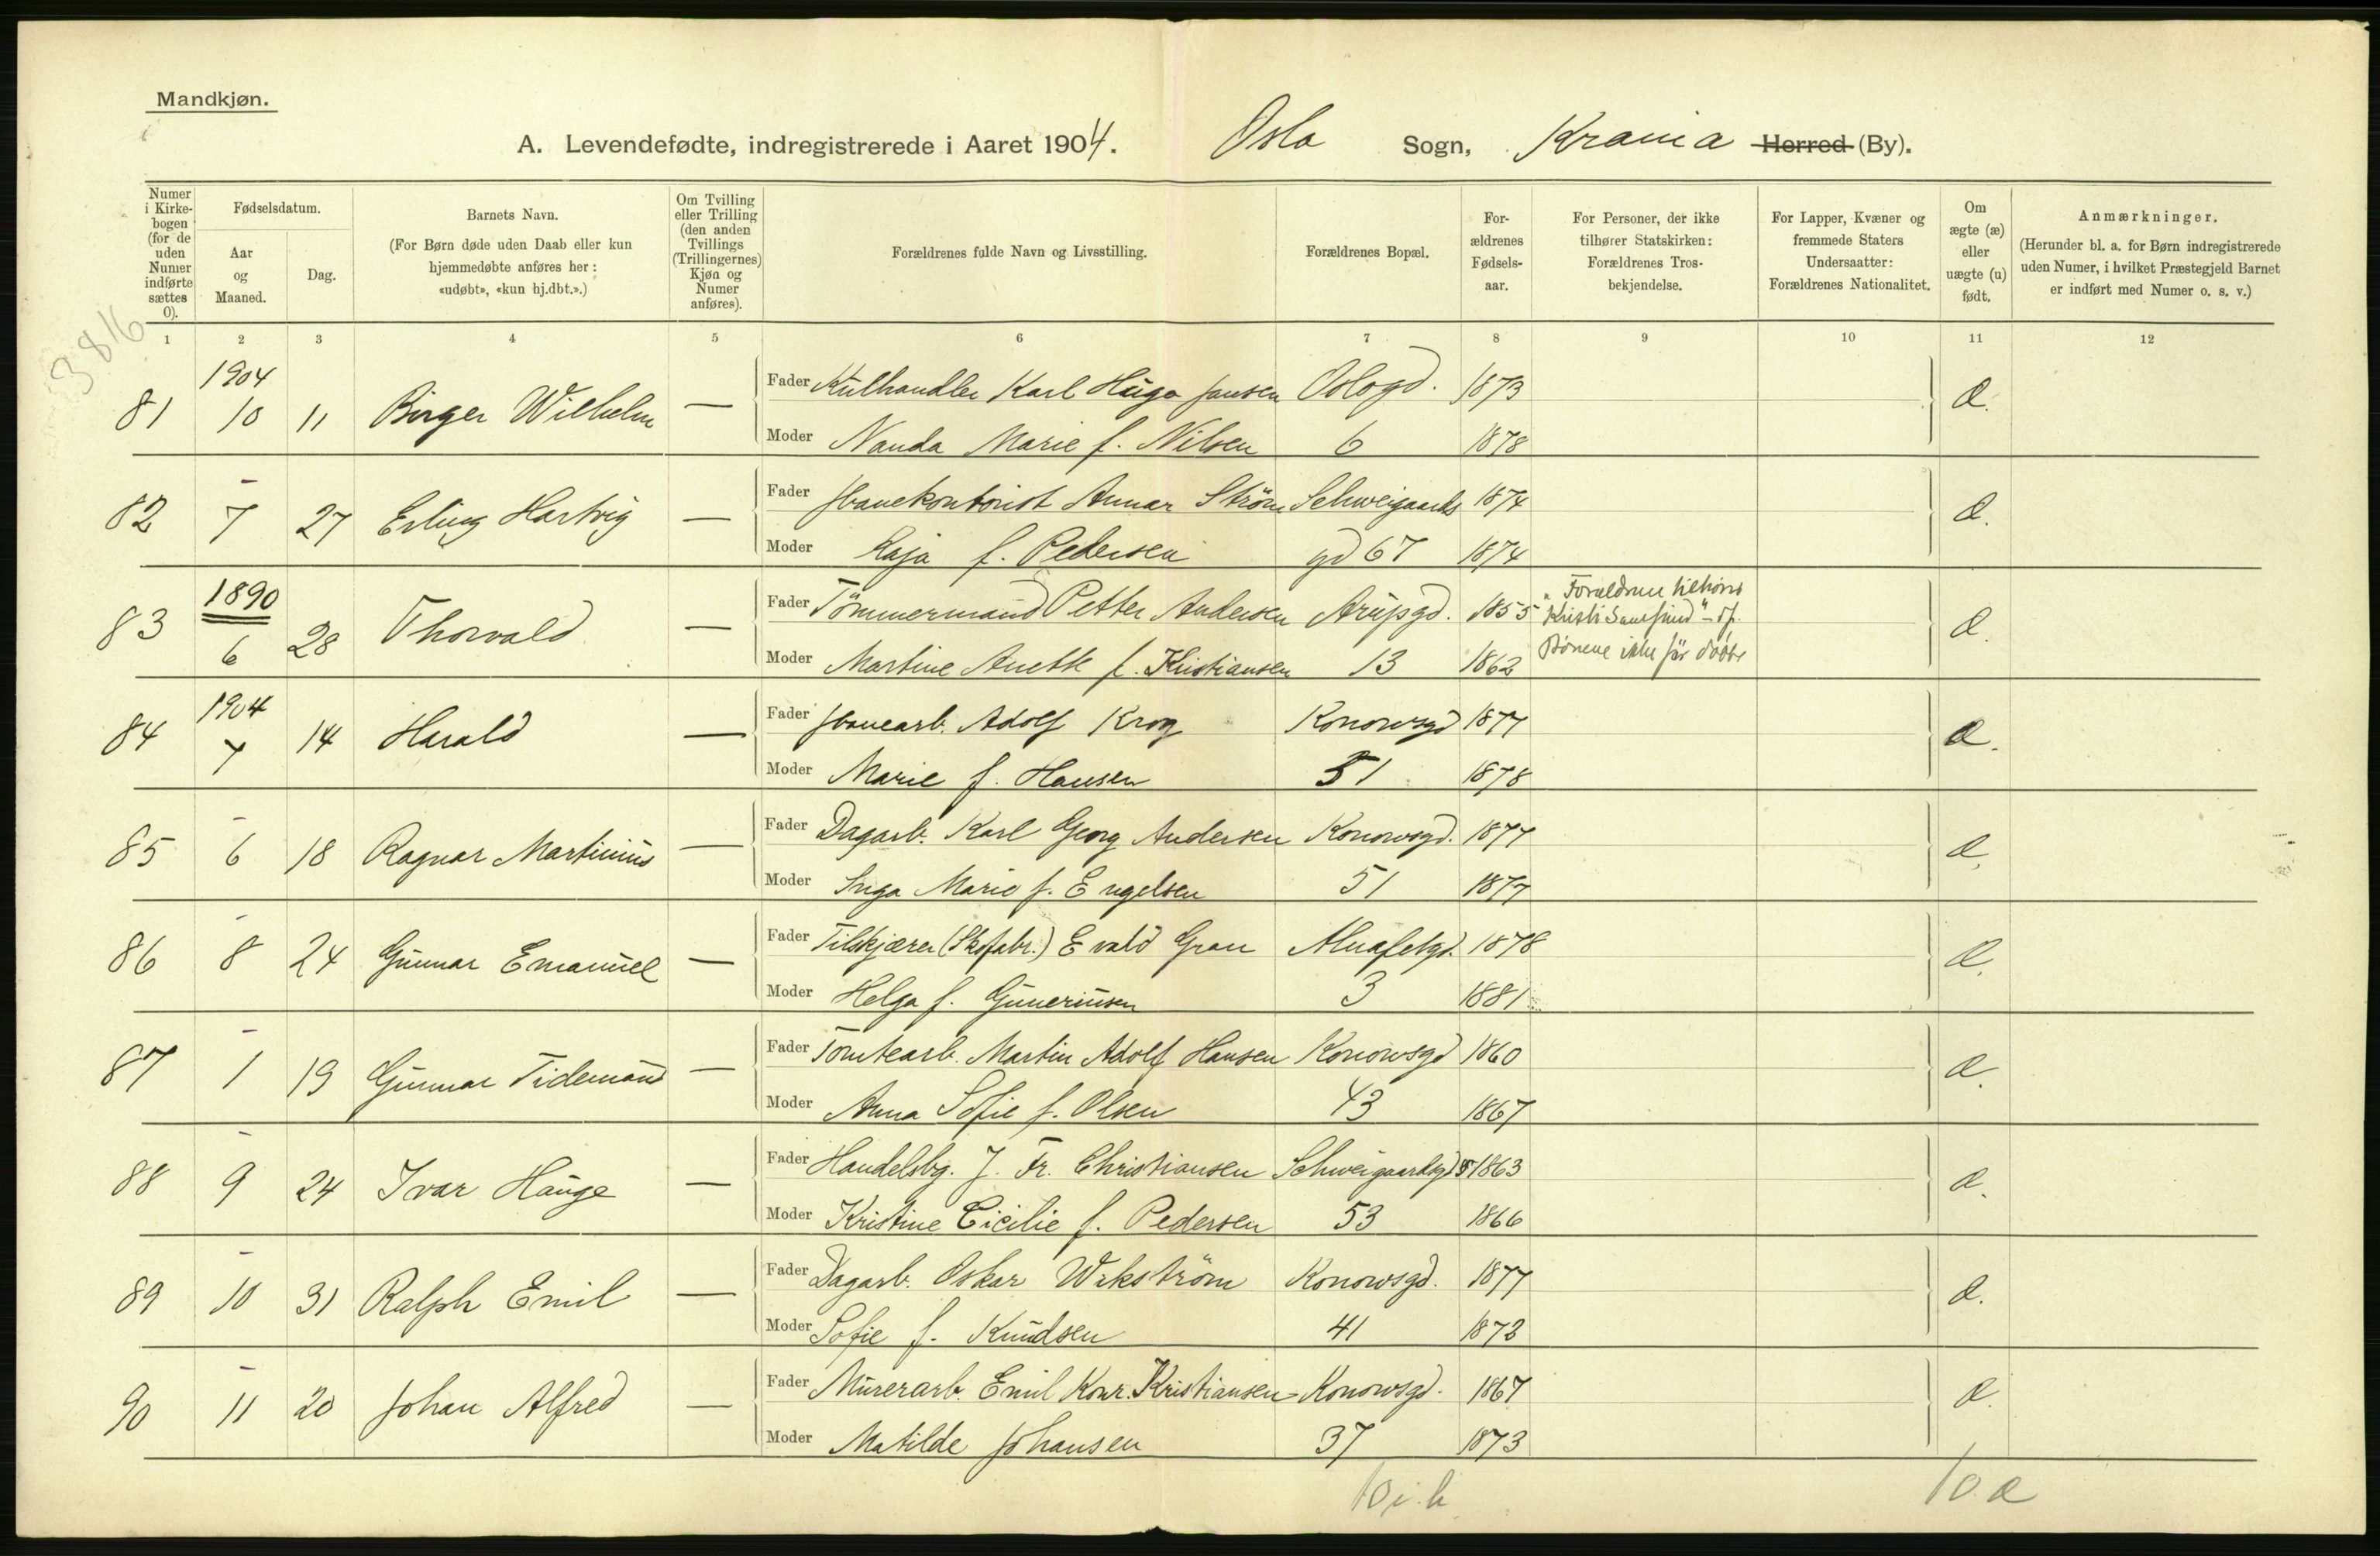 Mandkjøn.
A. Levendefødte, indregistrerede i Aaret 1904. Oslo Sogn, Krania Herred (By).
Numer i Kirkebogen (for de uden Numer indførte sættes 0).
Fødselsdatum.
Aar og Maaned.
Dag.
Barnets Navn.
(For Børn døde uden Daab eller kun hjemmedøbte anføres her: «udøbt», «kun hj.dbt.».)
Om Tvilling eller Trilling (den anden Tvillings (Trillingernes) Kjøn og Numer anføres).
Forældrenes fulde Navn og Livsstilling.
Forældrenes Bopæl.
Forældrenes Fødselsaar.
For Personer, der ikke tilhører Statskirken: Forældrenes Trosbekjendelse.
For Lapper, Kvæner og fremmede Staters Undersaatter: Forældrenes Nationalitet.
Om ægte (æ) eller uægte (u) født.
Anmærkninger.
(Herunder bl. a. for Børn indregistrerede uden Numer, i hvilket Præstegjeld Barnet er indført med Numer o. s. v.)
1 2 3 4 5 6 7 8 9 10 11 12
3816
1904
81 10 11 Birger Wilhelm — Fader Kulhandler Karl Hugo Jansen Oslogd. 1873 æ.
Moder Nanda Marie f. Nilsen 6 1878
82 - 7 27 Erling Hartvig — Fader Jbanekontorist Annar Ström Schweigaards 1874 æ.
Moder Kaja f. Pedersen gd 67 1874
83 1890 6 28 Thorvald — Fader Tömmermand Petter Andersen Arupgd. 1855 "Forældrene tilhører Kristi Samfund" - æ.
Moder Martine Anette f. Kristiansen 13 1862 Börnene ikke før døbt
84 1904 7 14 Harald — Fader Jbanearb. Adolf Krog Konowsgd 1877 æ.
Moder Marie f. Hansen 51 1878
85 - 6 18 Ragnar Martinius — Fader Dagarb. Karl Georg Andersen Konowsgd. 1877 æ.
Moder Inga Marie f. Engelsen 51 1877
86 - 8 24 Gunnar Emanuel — Fader Tilskjærer (Skofabr.) Evald Gran Alnafetgd. 1878 æ.
Moder Helga f. Guneriusen 3 1881
87 - 1 19 Gunnar Tidemand — Fader Tomtearb. Martin Adolf Hansen Konowsgd 1860 æ.
Moder Anna Sofie f. Olsen 43 1867
88 - 9 24 Ivar Hauge — Fader Handelsbg. J. Fr. Christiansen Schweigaardsgd 1863 æ.
Moder Kristine Cicilie f. Pedersen 53 1866
89 - 10 31 Ralph Emil — Fader Dagarb. Oskar Wikström Konowsgd. 1877 æ.
Moder Sofie f. Knudsen 41 1873
90 - 11 20 Johan Alfred — Fader Murerarb. Emil Konr. Kristiansen Konowsgd. 1867 æ.
Moder Matilde Johansen 37 1873
10 i. b 10 æ